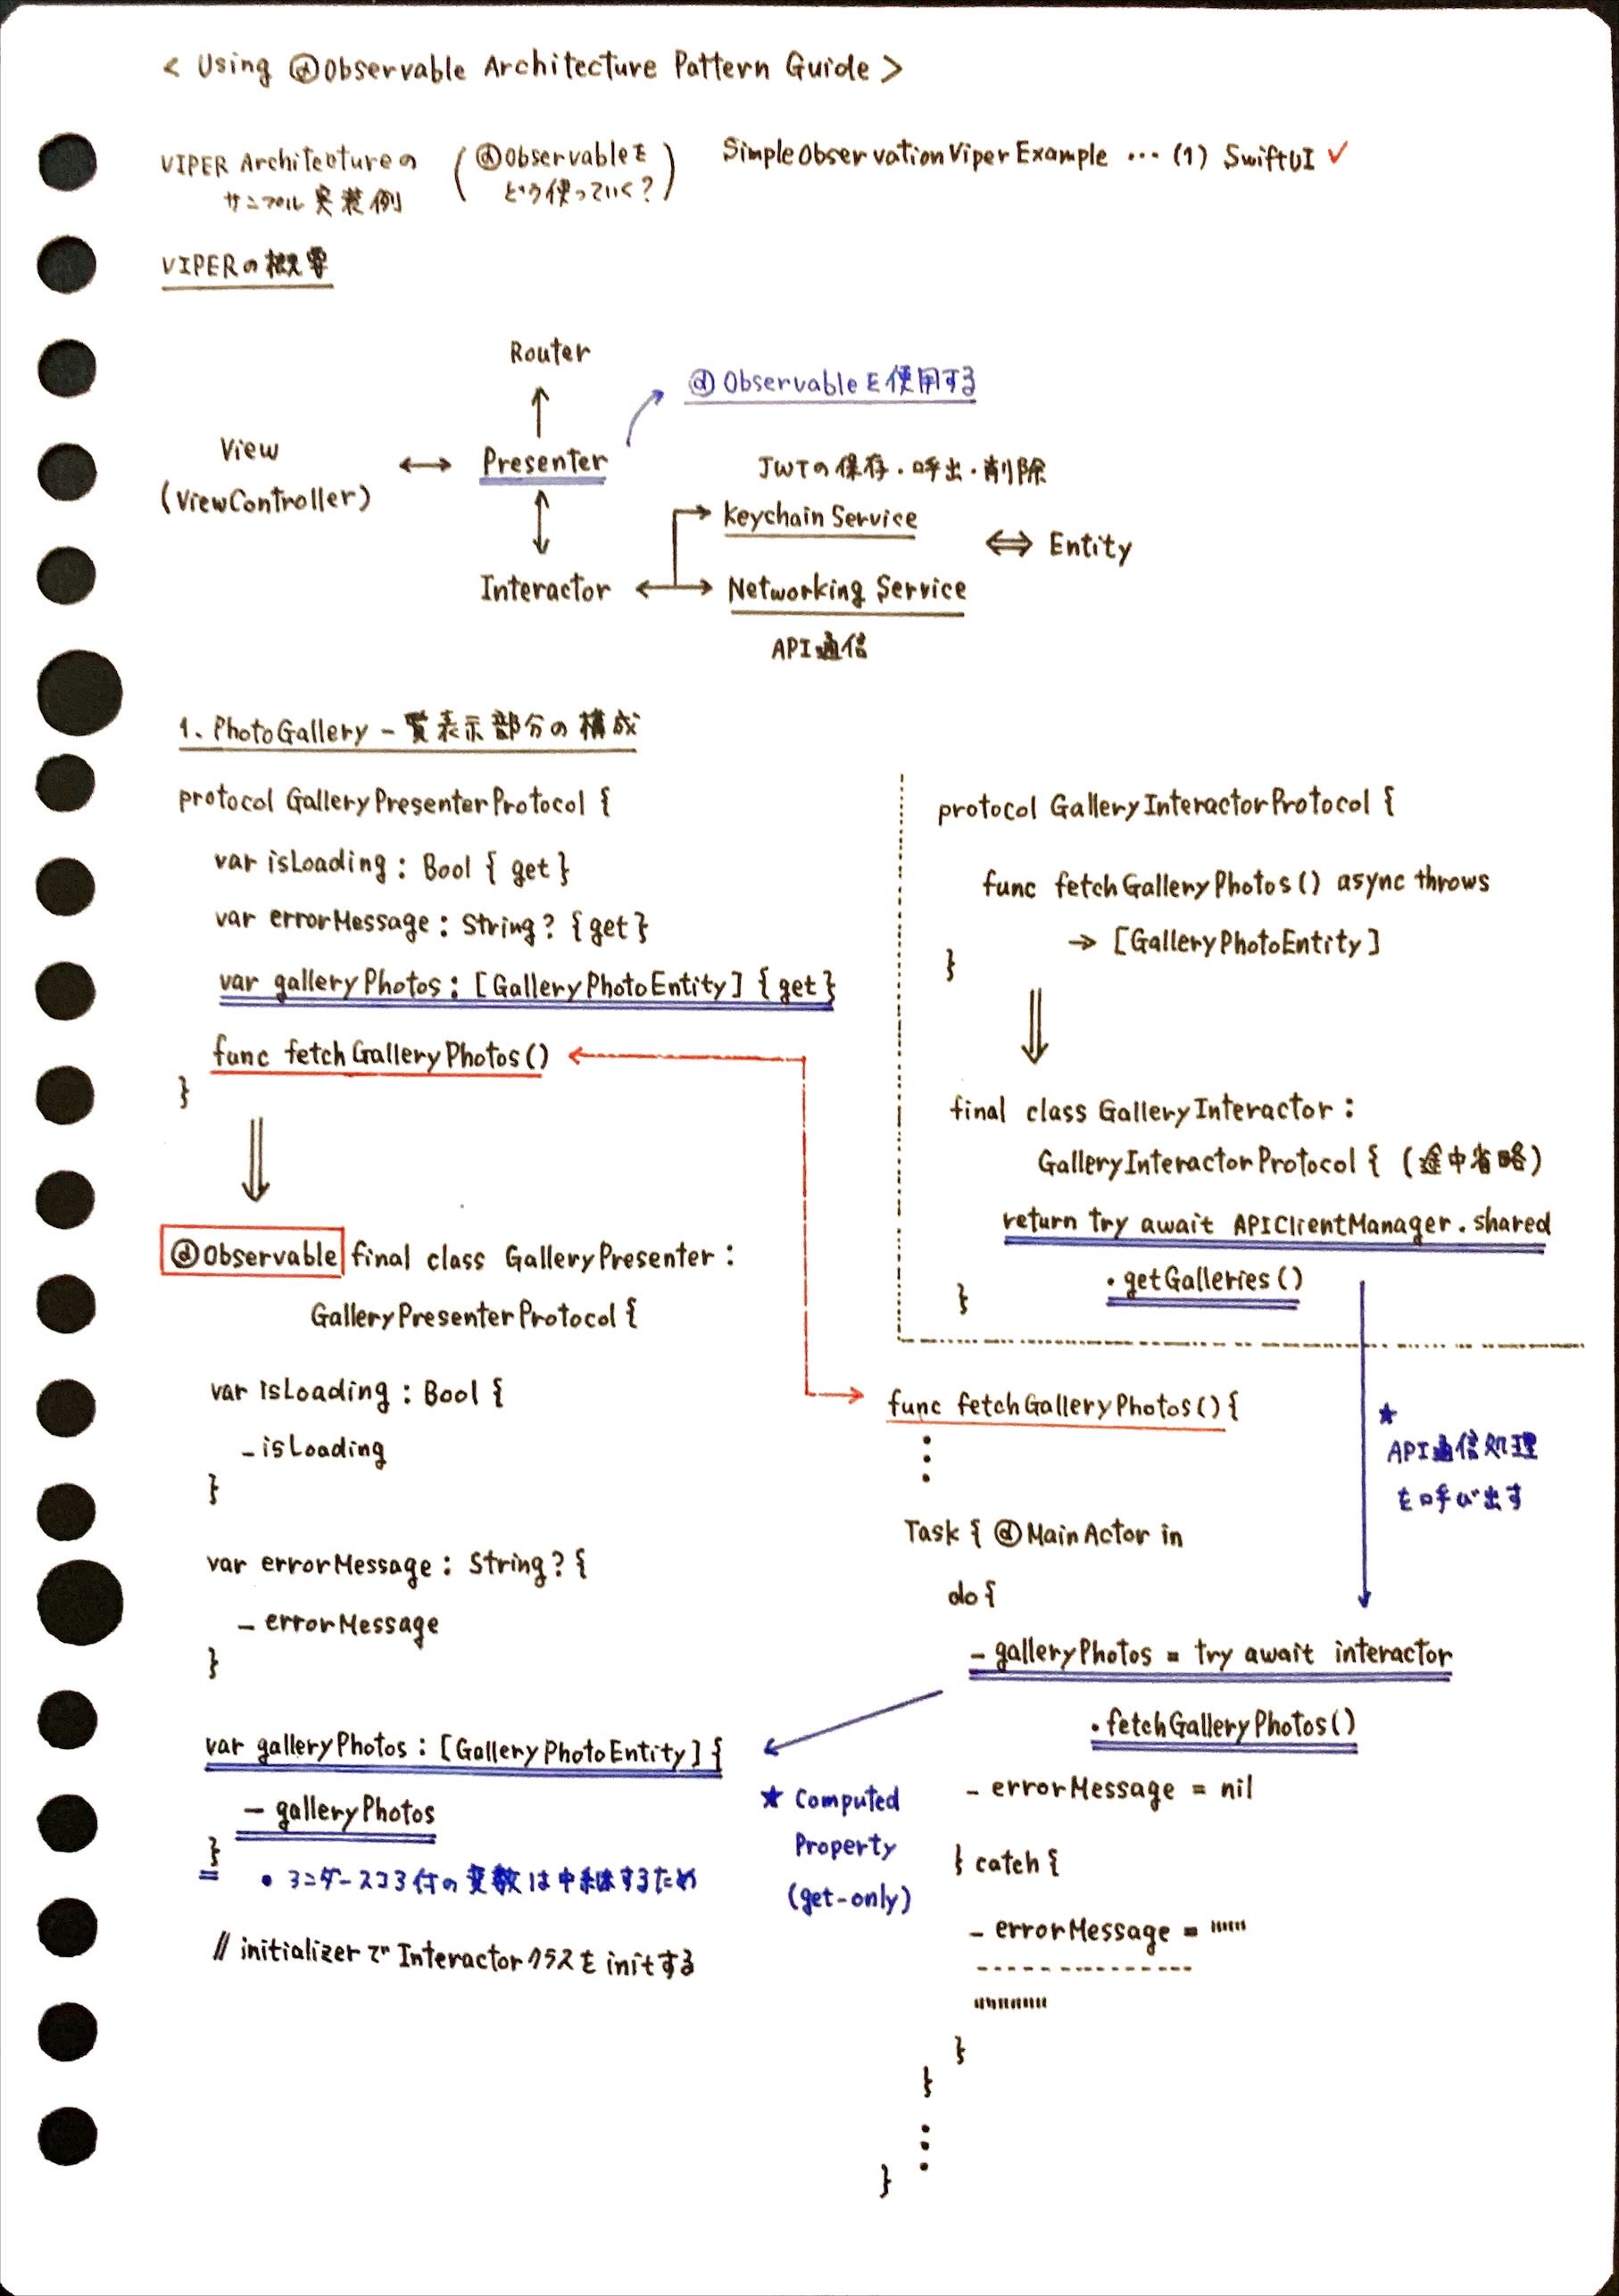 < Using @Observable Architecture Pattern Guide >
VIPER Architectureの
サンプル実装例
(@Observableを
どう使っていく?)
SimpleObservationViperExample ... (1) SwiftUI ✓
VIPERの概要
Router
@Observableを使用する
View
(ViewController)
Presenter
JWTの保存・呼出・削除
Keychain Service
Entity
Interactor
Networking Service
API通信
1. PhotoGallery一覧表示部分の構成
protocol GalleryPresenterProtocol {
var isLoading : Bool { get }
var errorMessage : String? {get}
var galleryPhotos : [GalleryPhotoEntity] {get}
func fetchGalleryPhotos()
}
@Observable final class GalleryPresenter :
GalleryPresenterProtocol {
var isLoading : Bool {
_isLoading
}
var errorMessage : String? {
_errorMessage
}
var galleryPhotos : [GalleryPhotoEntity] {
_galleryPhotos
}
• アンダースコア付の変数は中継するため
// initializerでInteractorクラスをinitする
protocol GalleryInteractorProtocol {
func fetchGalleryPhotos() async throws
→ [GalleryPhotoEntity]
}
final class GalleryInteractor :
GalleryInteractorProtocol { (途中省略)
return try await APIClientManager.shared
.getGalleries()
}
func fetchGalleryPhotos() {
★
API通信処理
を呼び出す
Task { @MainActor in
do {
_galleryPhotos = try await interactor
.fetchGalleryPhotos()
★ Computed
Property
(get-only)
_errorMessage = nil
} catch {
_errorMessage = """
}
}
}